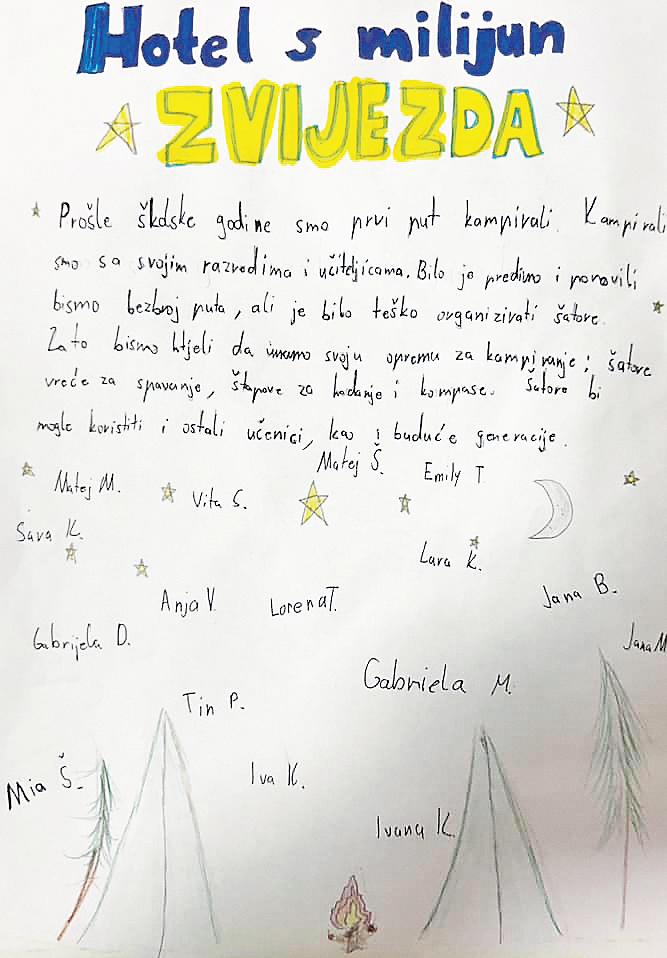 Hotel s milijun
ZVIJEZDA
Prošle školske godine smo prvi put kampirali. Kampirali
smo sa svojim razredima i učiteljicama. Bilo je predivno i ponovili
bismo bezbroj puta, ali je bilo teško organizirati šatore.
Zato bismo htjeli da imamo svoju opremu za kampiranje; šatore
vreće za spavanje, štapove za hodanje i kompase. Šatore bi
mogle koristiti i ostali učenici, kao i buduće generacije.
Matej Š.
Emily T
Matej M.
Vita S.
Sava K.
Lara K.
Jana B.
Anja V.
Lorena T.
Gabrijela D.
Jana M
Gabriela M.
Tin P.
Mia Š.
Iva K.
Ivana K.